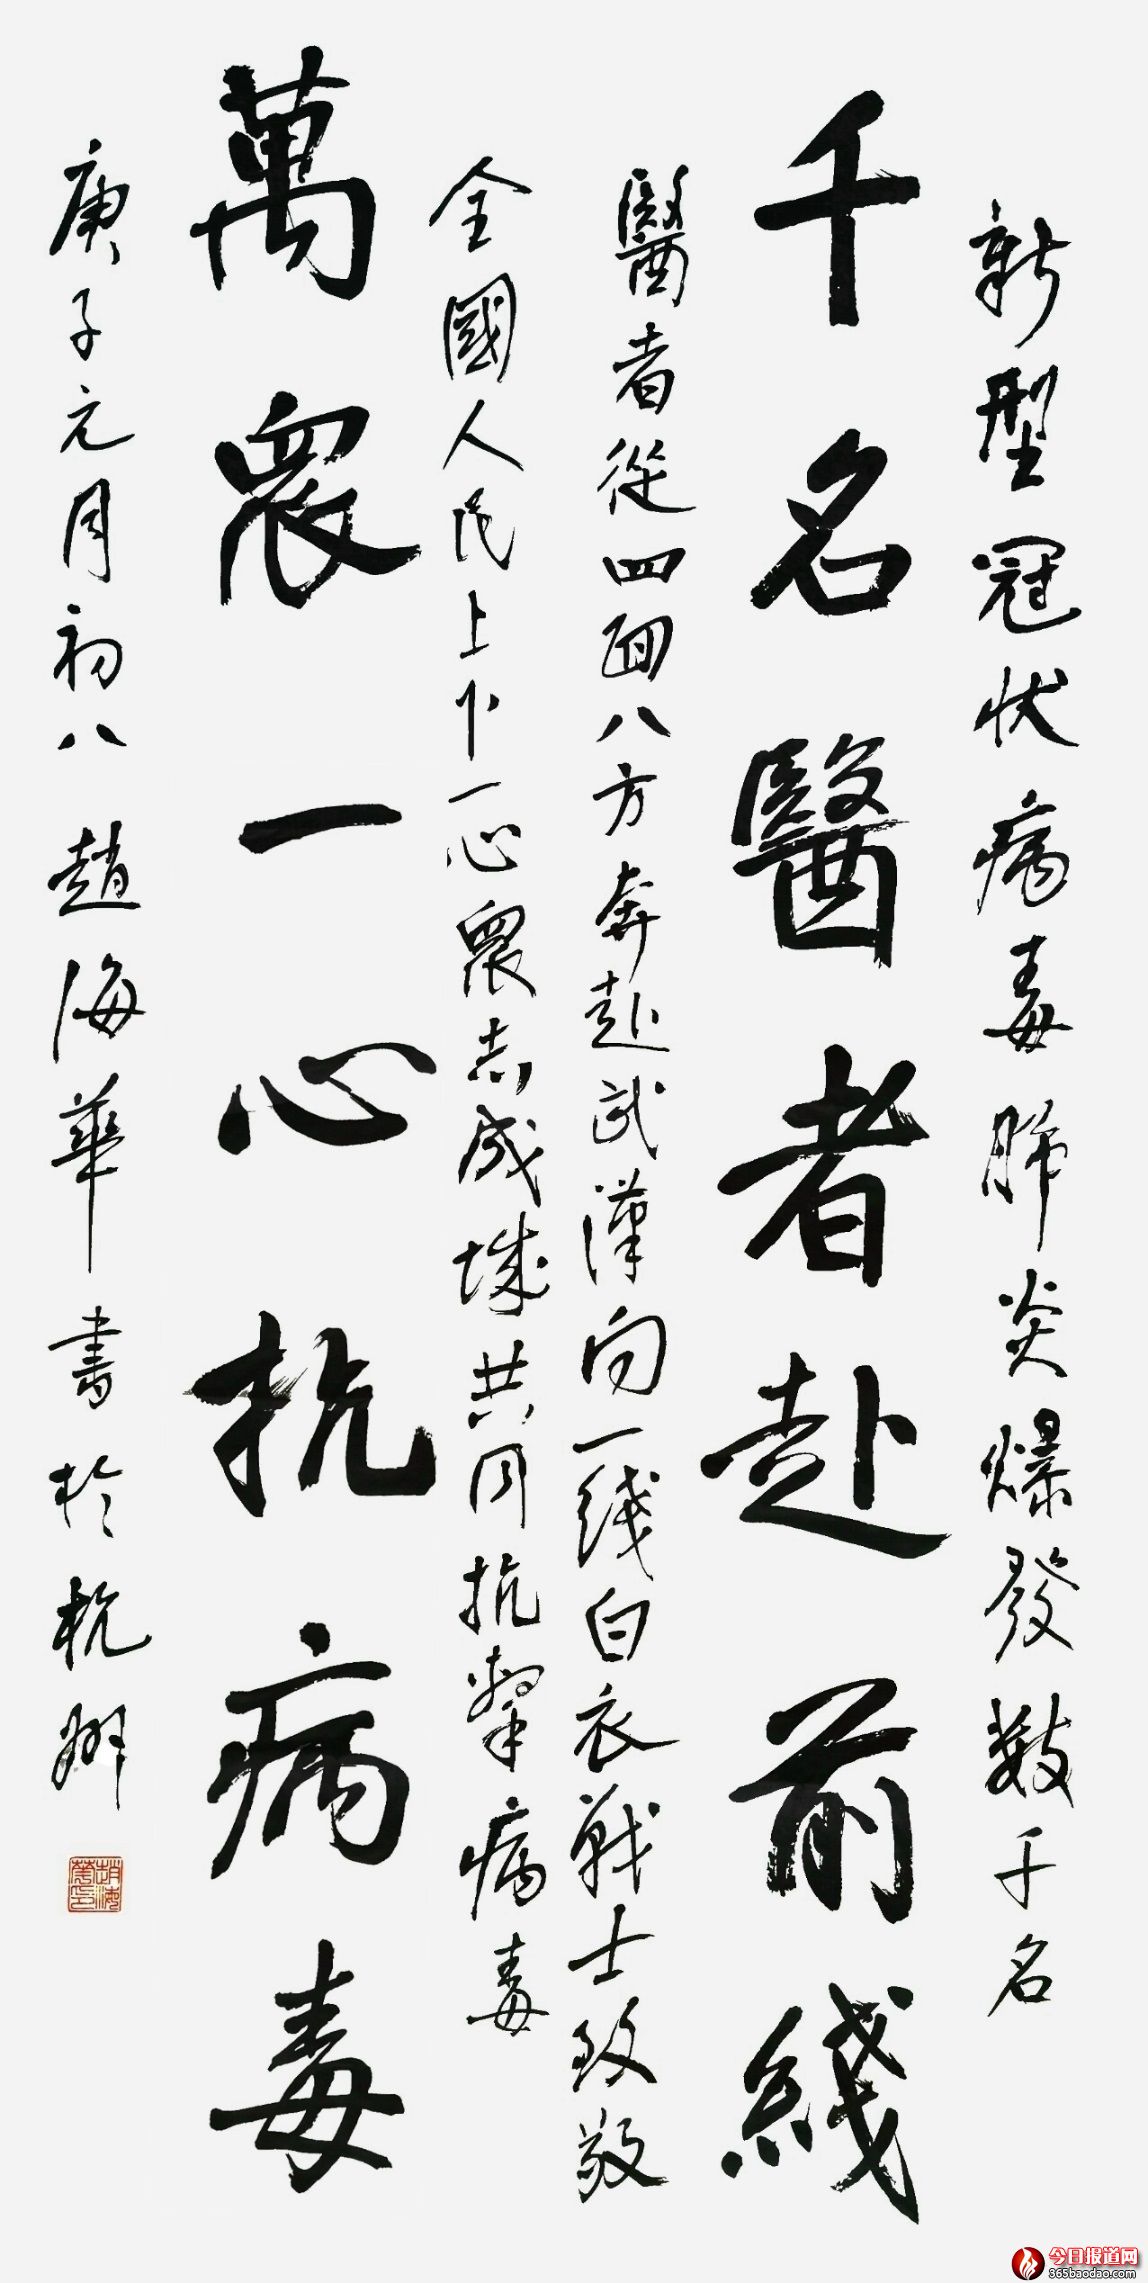 新型冠状病毒肺炎爆發数千名
千名醫者赴前綫
醫者從四面八方奔赴武漢向一线白衣戰士致敬
全國人民上下一心眾志成城共同抗擊病毒
萬眾一心抗病毒
庚子元月初八 趙海華書於杭州
趙海華印
今日报道网
365baodao.com